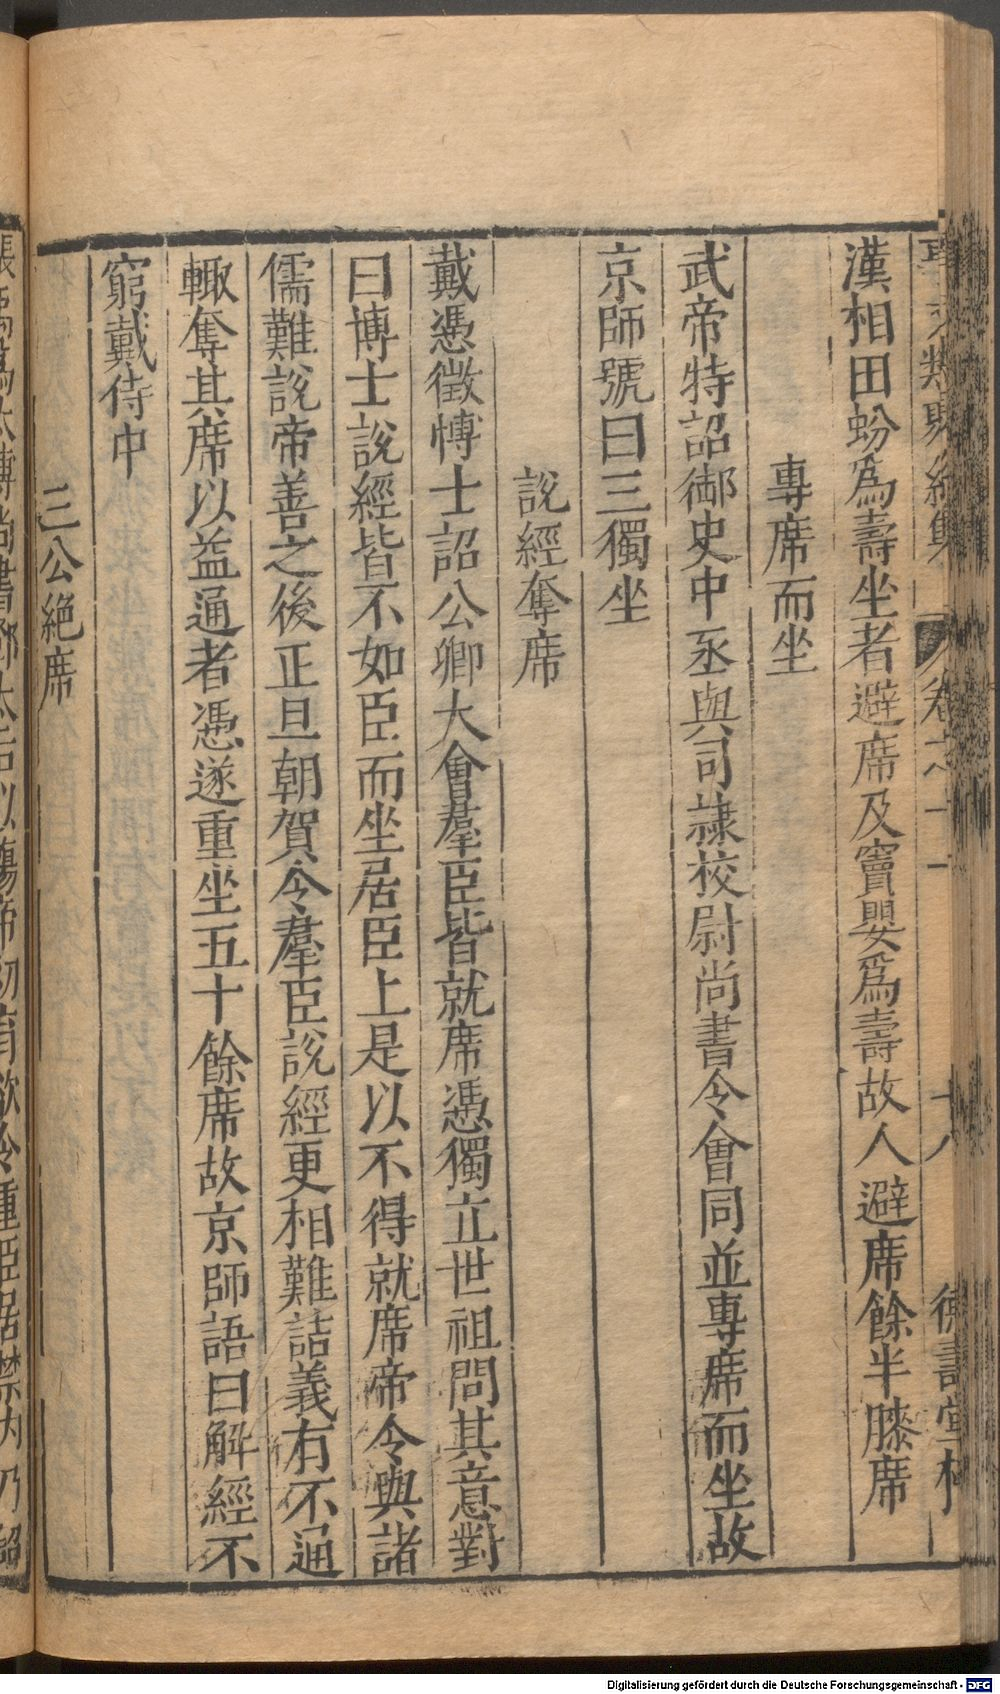 類聚 集 卷之十一 十八 德壽堂梓
漢相田蚡為壽坐者避席及竇嬰為壽故人避席餘半膝席
專席而坐
武帝特詔御史中丞與司隷校尉尚書令會同並專席而坐故
京師號曰三獨坐
說經奪席
戴憑徵博士詔公卿大會羣臣皆就席憑獨立世祖問其意對
曰博士說經皆不如臣而坐居臣上是以不得就席帝令與諸
儒難說帝善之後正旦朝賀令羣臣說經更相難詰義有不通
輙奪其席以益通者憑遂重坐五十餘席故京師語曰解經不
窮戴侍中
三公絶席
張禹 太傅尚書鄧太后以殤帝初育欲令重臣居禁內乃詔
Digitalisierung gefördert durch die Deutsche Forschungsgemeinschaft - DFG